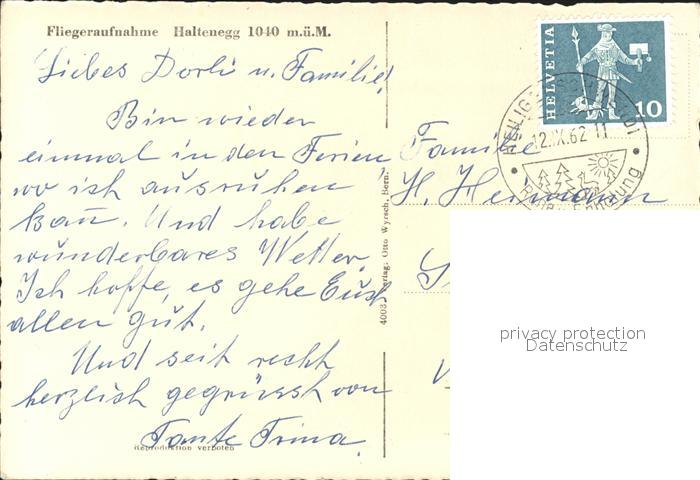 Fliegeraufnahme Haltenegg 1040 m.ü.M.
Liebes Dorli u. Familie!
Bin wieder
einmal in den Ferien
wo ich ausruhen
kann. Und habe
wunderbares Wetter.
Ich hoffe, es gehe Euch
allen gut.
Und seit recht
herzlich gegrüsst von
Tante Trina.
Reproduktion verboten
Verlag: Otto Wyrsch, Bern.
HELVETIA
10
12.IX.62-11
Familie
H. Hermann
privacy protection
Datenschutz